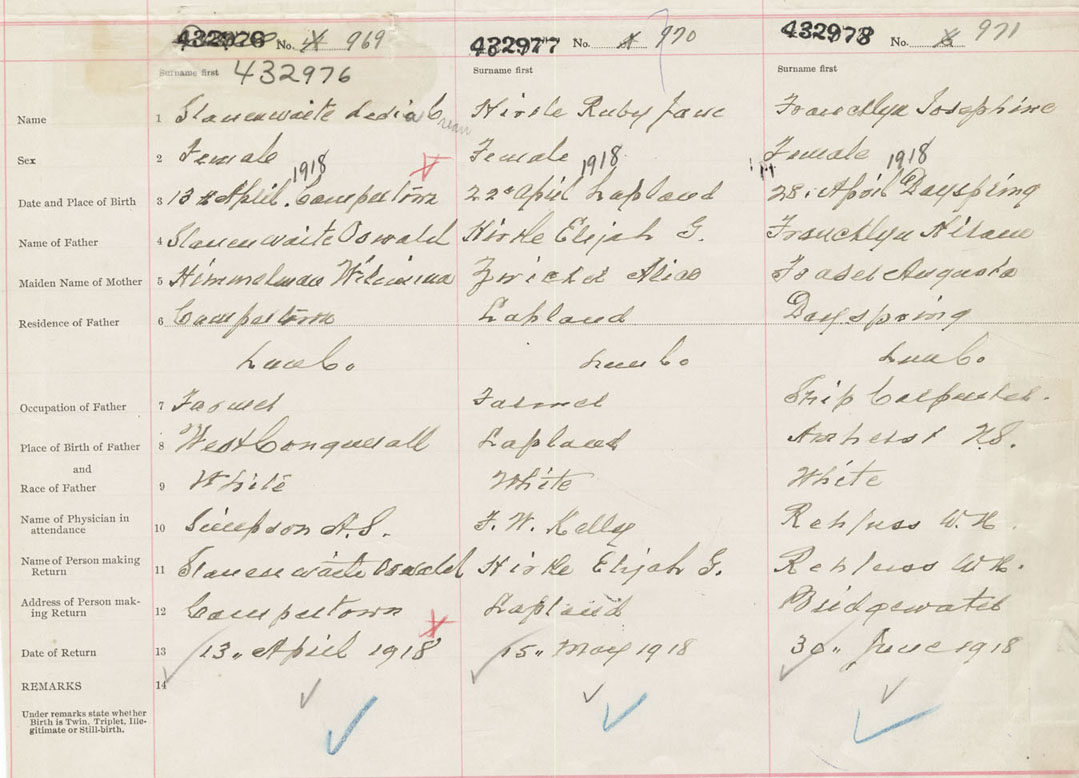 432976 No. 969 432977 No. 970 432978 No. 971
Surname first 432976 Surname first Surname first
Name 1 Hirtle Ruby Jane Francklyn Josephine
Sex 2 Female Female Female
1918 1918 1918
Date and Place of Birth 3 13th April. Camperton 22d April Lapland 28. April Dayspring
Name of Father 4 Oswald Hirtle Elijah G. Francklyn Hiram
Maiden Name of Mother 5 Himmelman Alice Augusta
Residence of Father 6 Camperton Lapland Dayspring
Lun Co. Lun Co. Lun Co.
Occupation of Father 7 Farmer Farmer Ship Carpenter.
Place of Birth of Father 8 West Conquerall Lapland Amherst N.S.
and
Race of Father 9 White White White
Name of Physician in
attendance 10 Simpson A.S. F. W. Kelley Rehfuss W.H.
Name of Person making
Return 11 Oswald Hirtle Elijah G. Rehfuss W.H.
Address of Person mak-
ing Return 12 Campertown Lapland Bridgewater
Date of Return 13 13" April 1918 15" May 1918 30" June 1918
REMARKS 14
Under remarks state whether
Birth is Twin, Triplet, Ille-
gitimate or Still-birth.